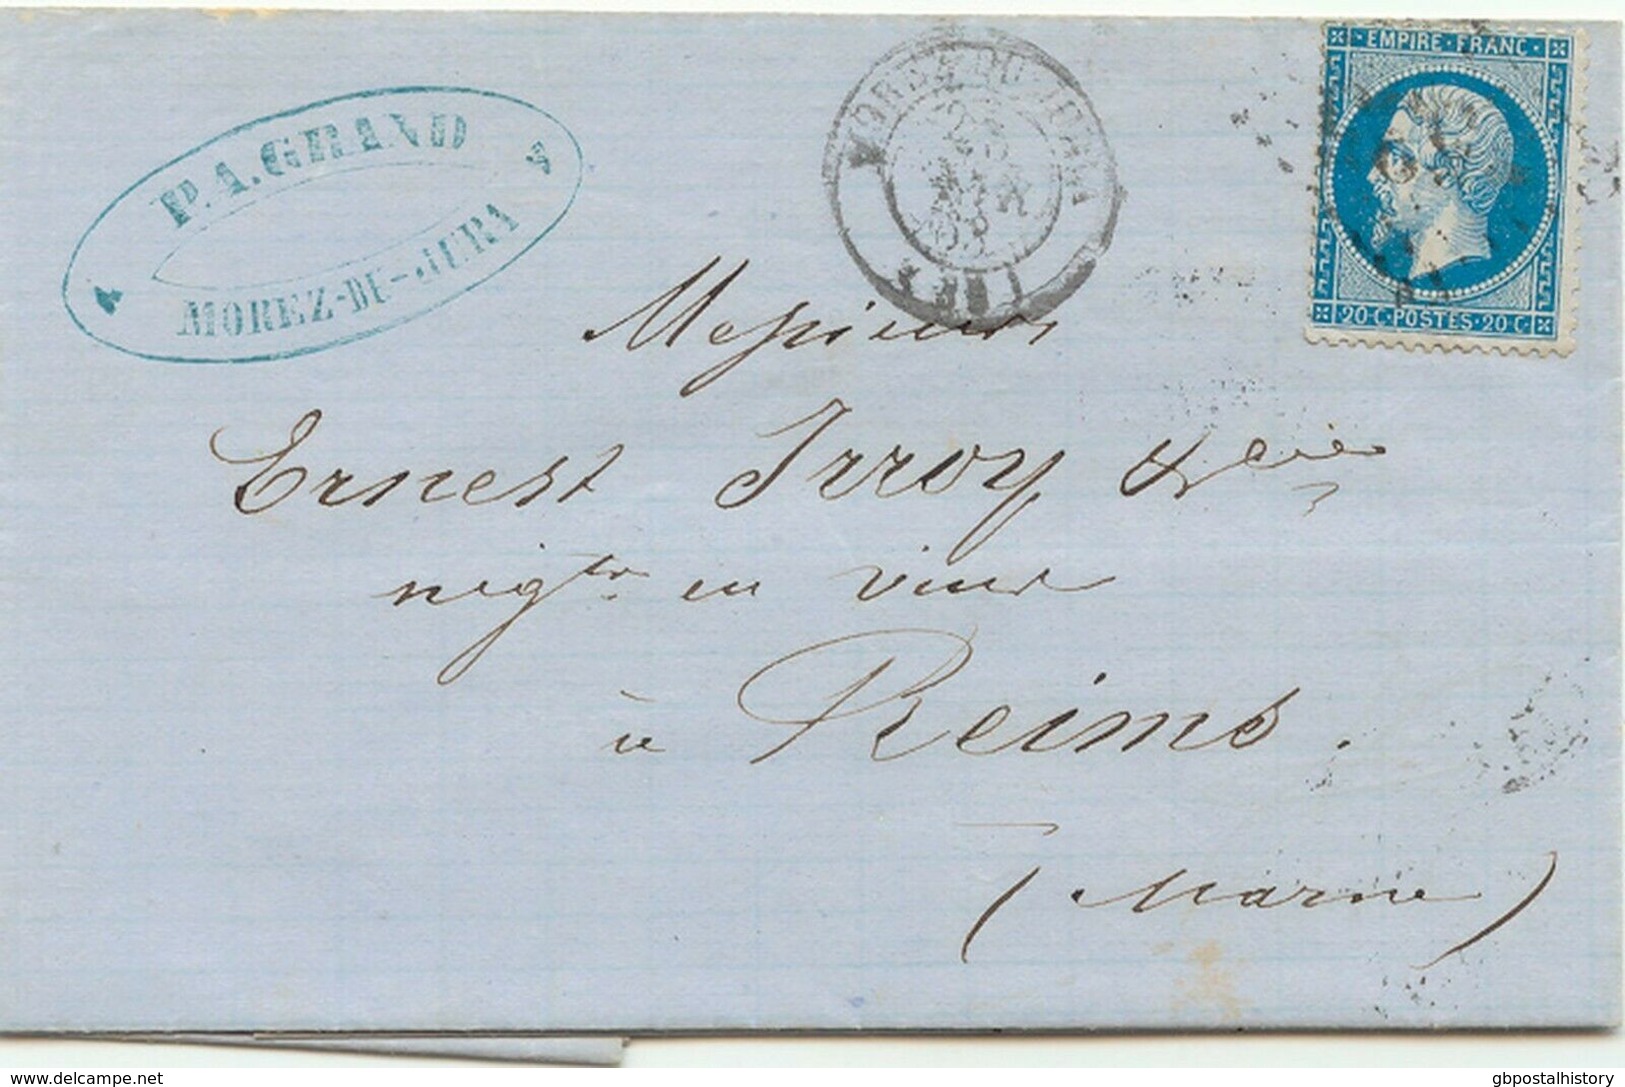 P. A. GRAND
MOREZ-DU-JURA
MOREZ-DU-JURA
EMPIRE · FRANC
20 C · POSTES · 20 C
Messieurs
Ernest Irroy & Cie
négts en vins
à Reims.
(Marne)
www.delcampe.net
gbpostalhistory